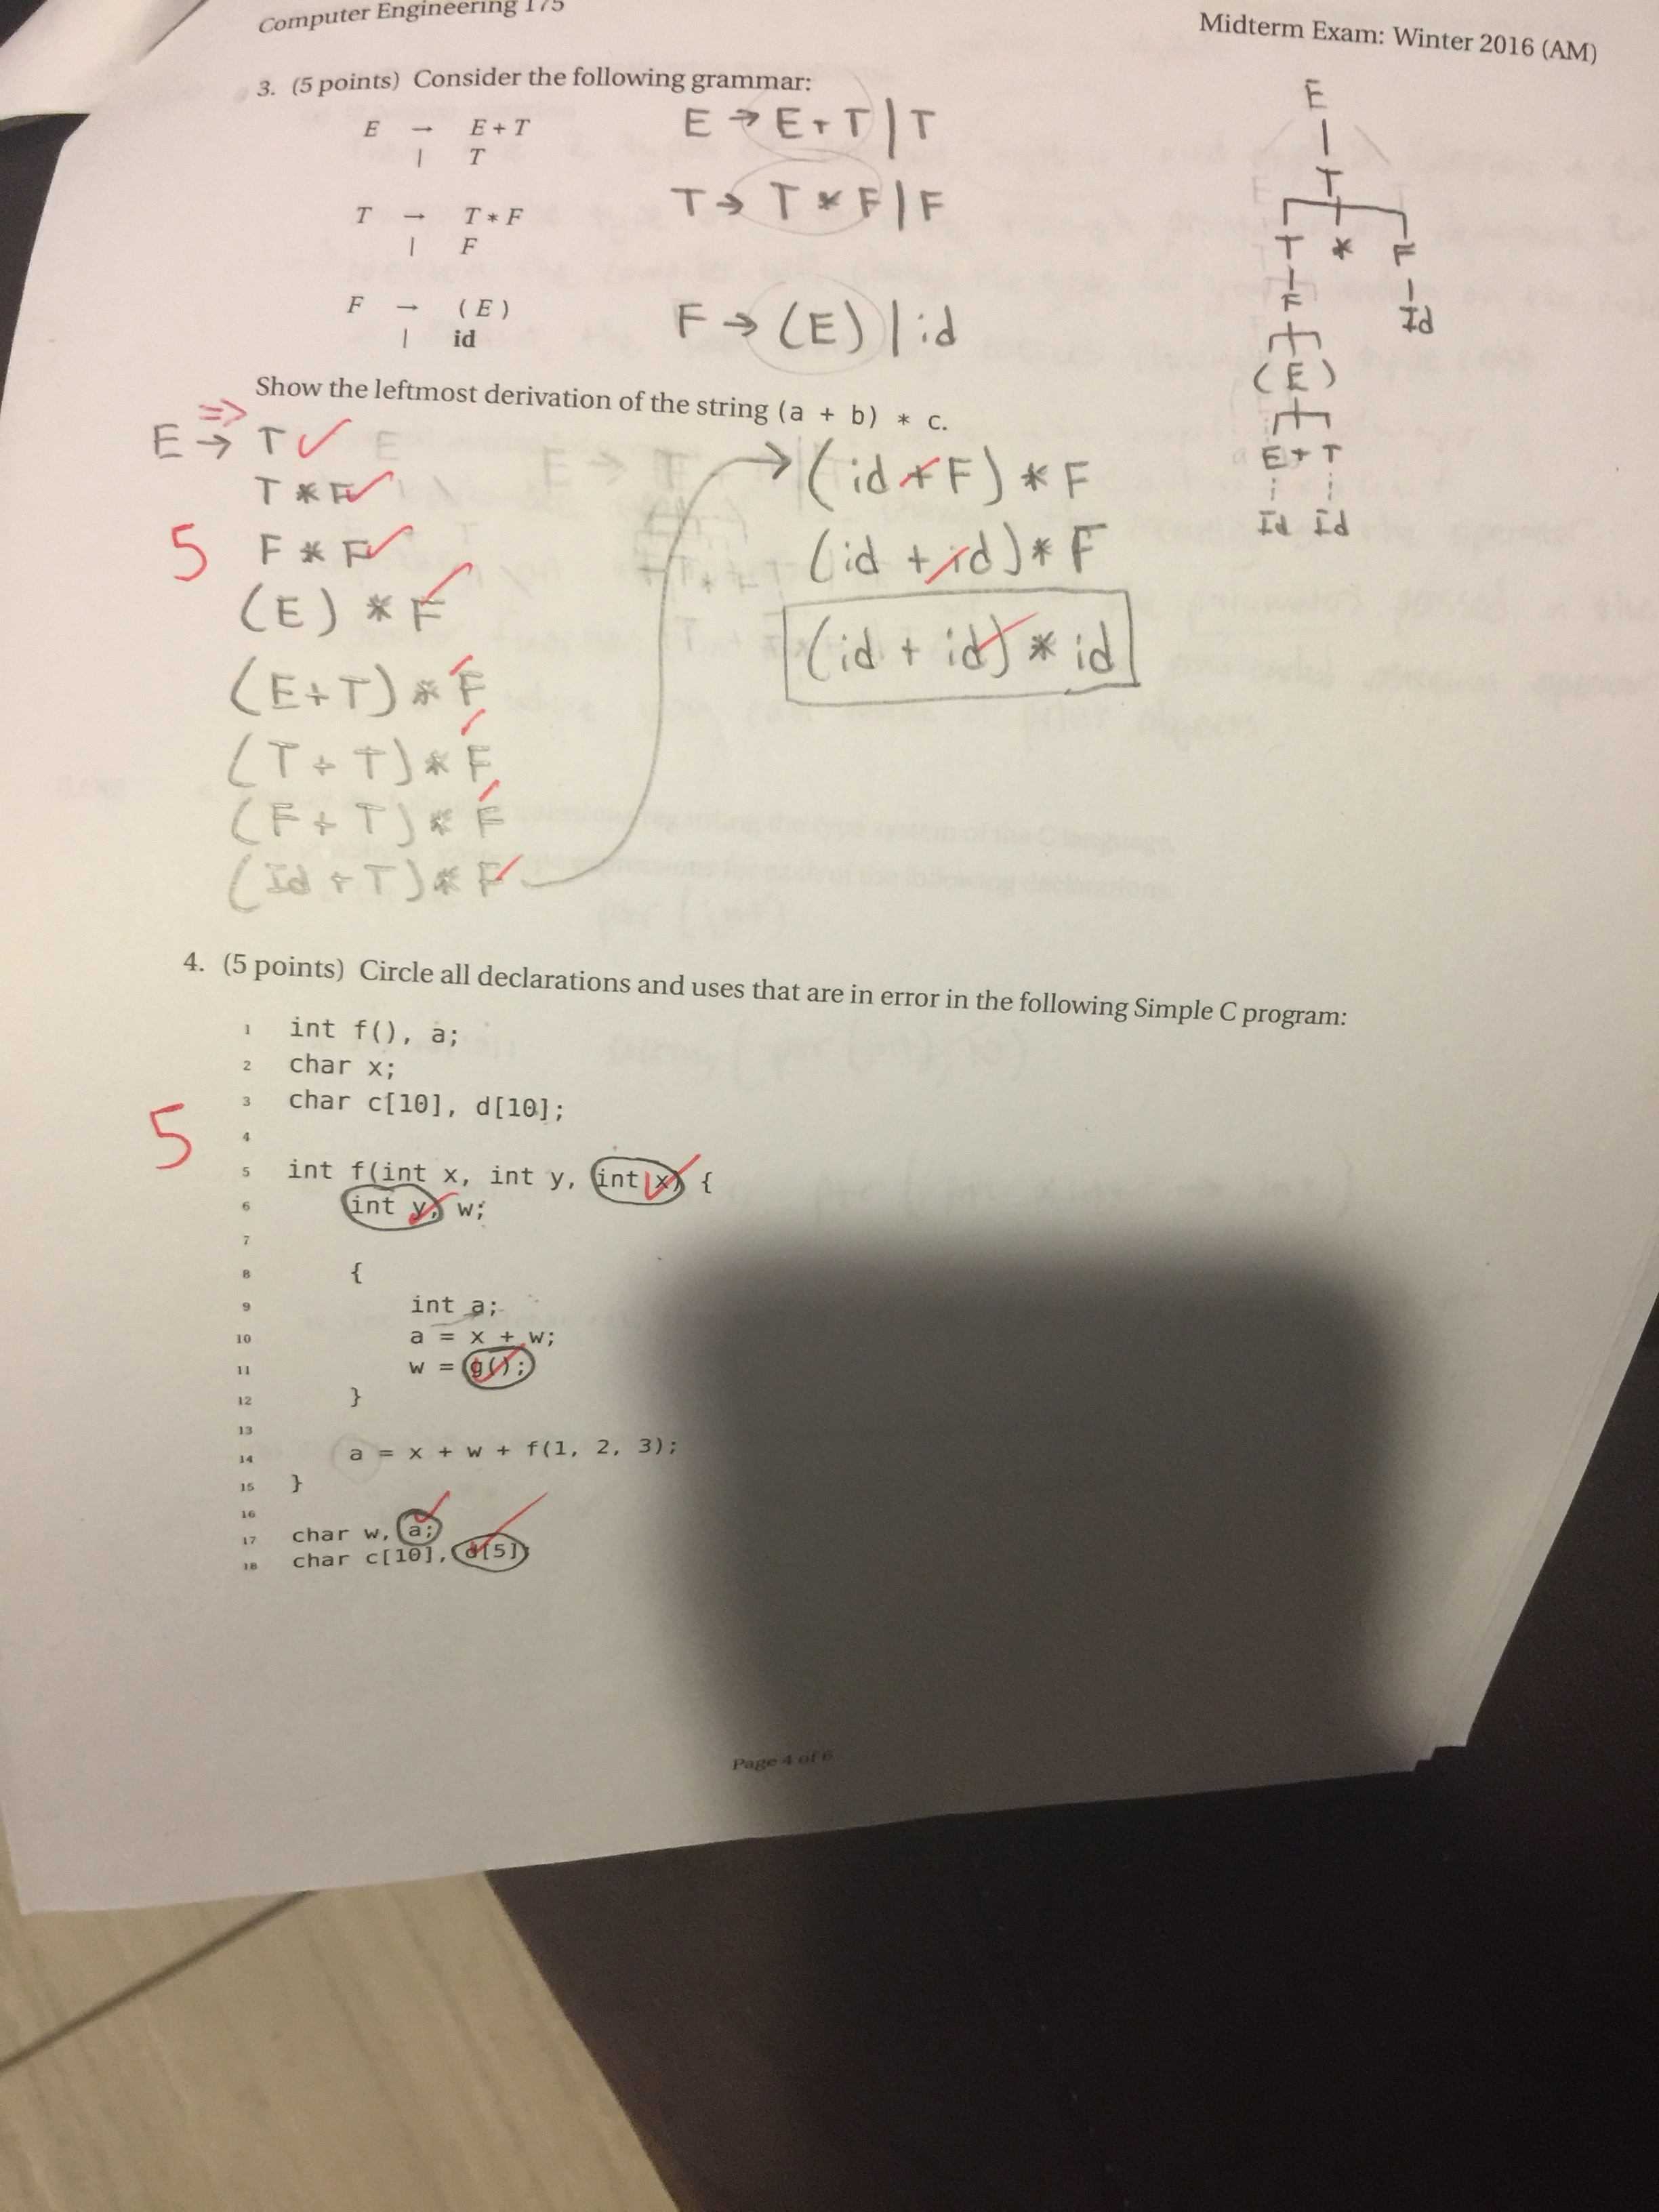 Computer Engineering 175
Midterm Exam: Winter 2016 (AM)
3. (5 points) Consider the following grammar:
E → E + T
| T
T → T * F
| F
F → ( E )
| id
E → E + T | T
T → T * F | F
F → (E) | id
E
|
T
T * F
F Id
( E )
E + T
Id Id
Show the leftmost derivation of the string (a + b) * c.
⇒
E → T
T * F
5
F * F
(E) * F
(E+T) * F
(T+T) * F
(F+T) * F
(Id+T) * F
(id+F) * F
(id + id) * F
(id + id) * id
4. (5 points) Circle all declarations and uses that are in error in the following Simple C program:
5
1 int f(), a;
2 char x;
3 char c[10], d[10];
4
5 int f(int x, int y, int x) {
6 int y, w;
7
8 {
9 int a;
10 a = x + w;
11 w = g();
12 }
13
14 a = x + w + f(1, 2, 3);
15 }
16
17 char w, a;
18 char c[10], d[5];
Page 4 of 6